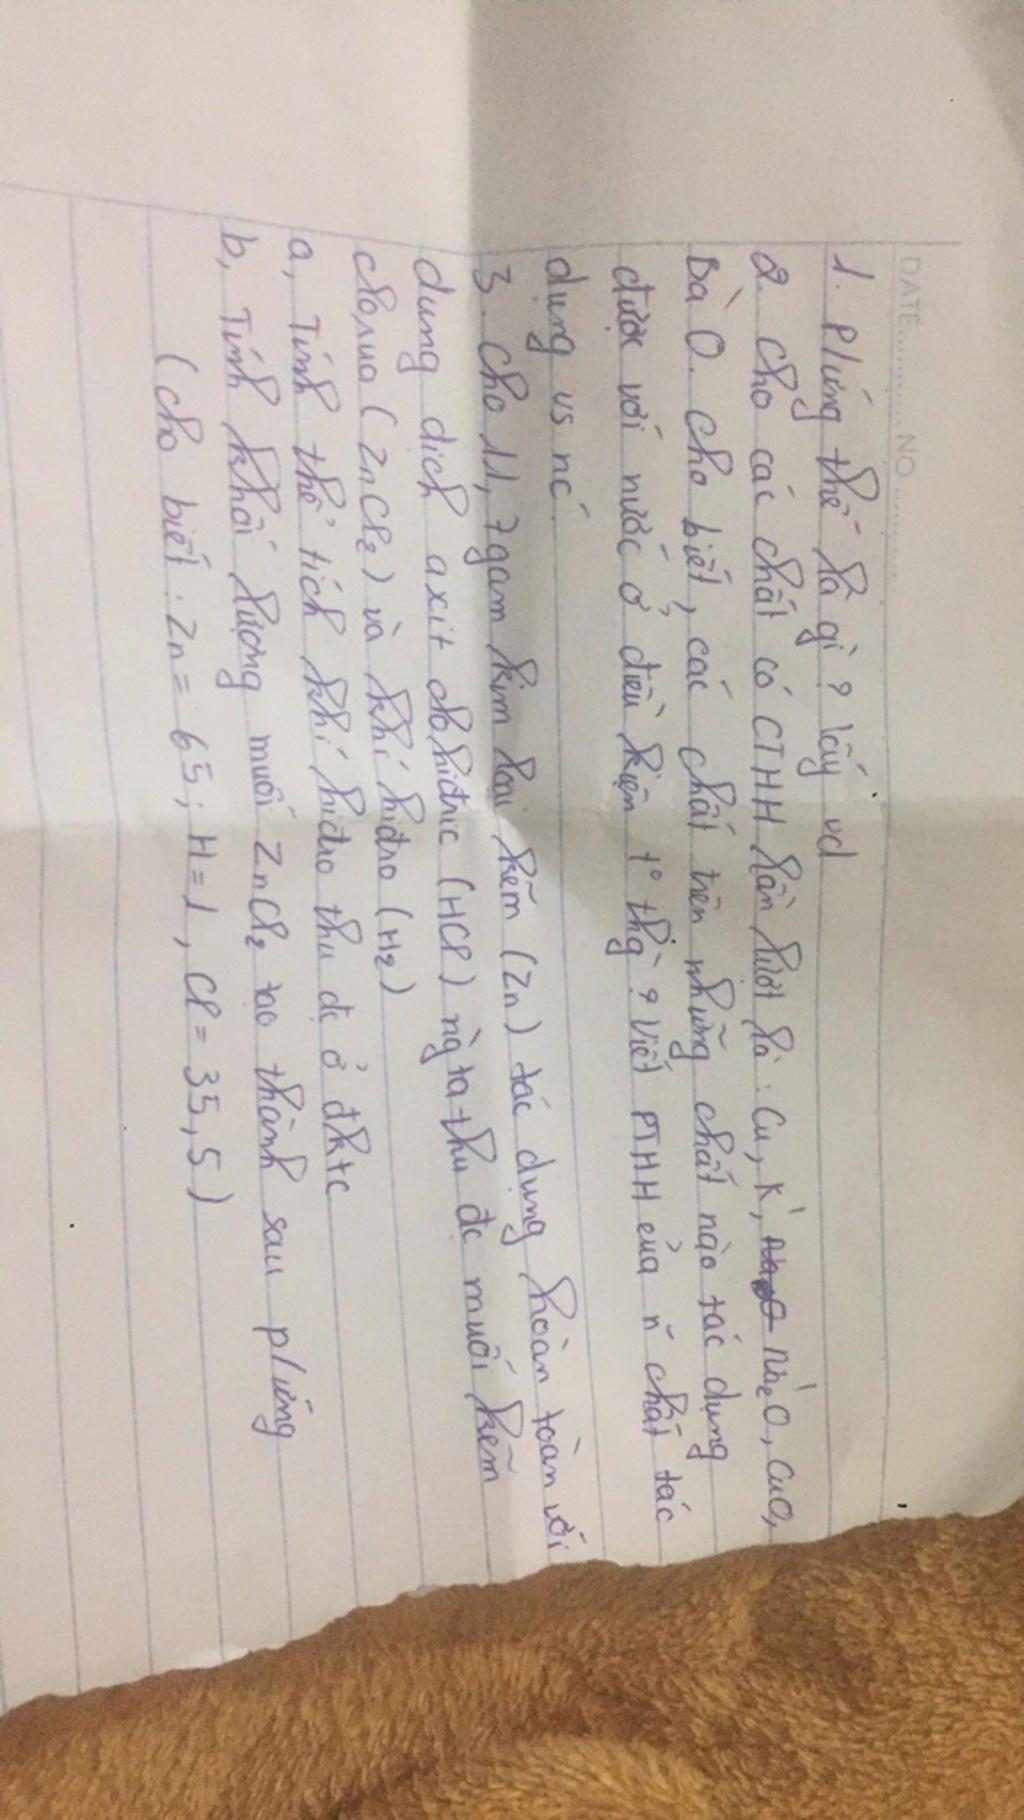 DATE.............NO..............
1. P/ứng thế là gì ? lấy vd
2. cho các chất có CTHH lần lượt là : Cu, K, Na2O, CuO,
BaO. cho biết, các chất trên những chất nào tác dụng
được với nước ở điều kiện t° thg ? Viết PTHH của n~ chất tác
dụng vs nc'.
3. cho 11,7gam kim loại kẽm (Zn) tác dụng hoàn toàn với
dung dịch axit clohiđric (HCl) ng ta thu đc muối kẽm
clorua (ZnCl2) và khí hiđro (H2)
a, Tính thể tích khí hiđro thu đc ở đktc
b, Tính khối lượng muối ZnCl2 tạo thành sau p/ứng
(cho biết : Zn = 65; H=1, Cl = 35,5)